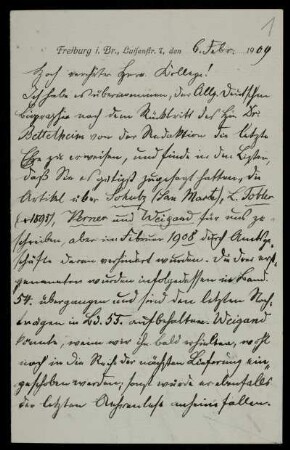 1
Freiburg i. Br., Luisenstr. 7, den 6. Febr. 1909
Hoch verehrter Herr Kollege!
Ich habe es übernommen, der Allg. Deutschen
Biographie nach dem Rücktritt des Hn Dr
Bettelheim von der Redaktion die letzte
Ehre zu erweisen, und finde in den Listen,
daß Sie es gütigst zugesagt hatten, die
Artikel über Schultz (San Marte), L. Tobler
(† 1895), Werner und Weigand für uns zu
schreiben, aber im Februar 1908 durch Amtsge-
schäfte daran verhindert wurden. Die drei erst-
genannten wurden infolgedessen in Band
54 übergangen und sind den letzten Nach-
trägen in Bd. 55. aufbehalten. Weigand
könnte, wenn wir ihn bald erhielten, wohl
noch in die Reihe der nächsten Lieferung ein-
geschoben werden; sonst würde er ebenfalls
der letzten Aehrenlese anheimfallen.